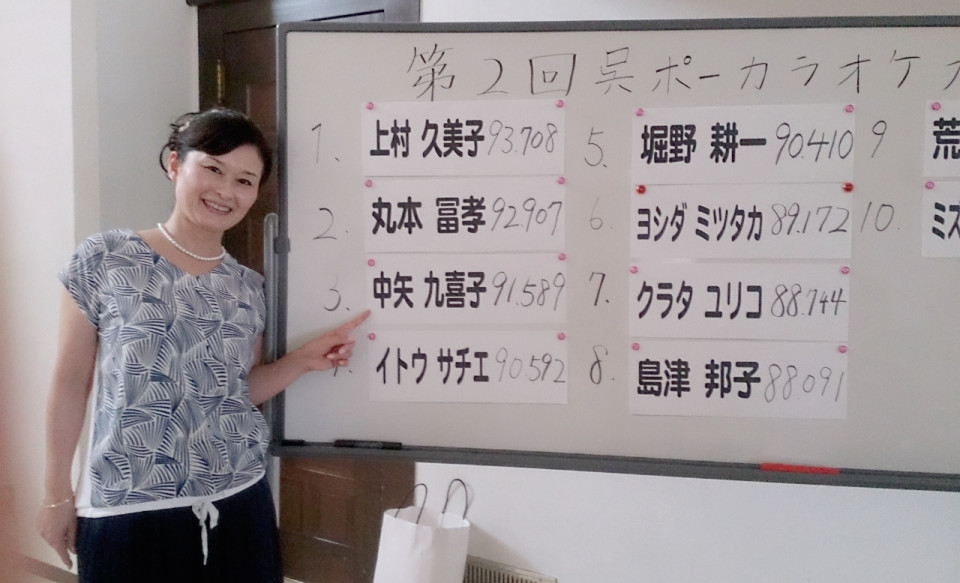 第2回呉ポーカラオケ
1. 上村 久美子 93.708
2. 丸本 冨孝 92.907
3. 中矢 九喜子 91.589
4. イトウ サチエ 90.592
5. 堀野 耕一 90.410
6. ヨシダ ミツタカ 89.172
7. クラタ ユリコ 88.744
8. 島津 邦子 88.091
9 荒
10. ミズ